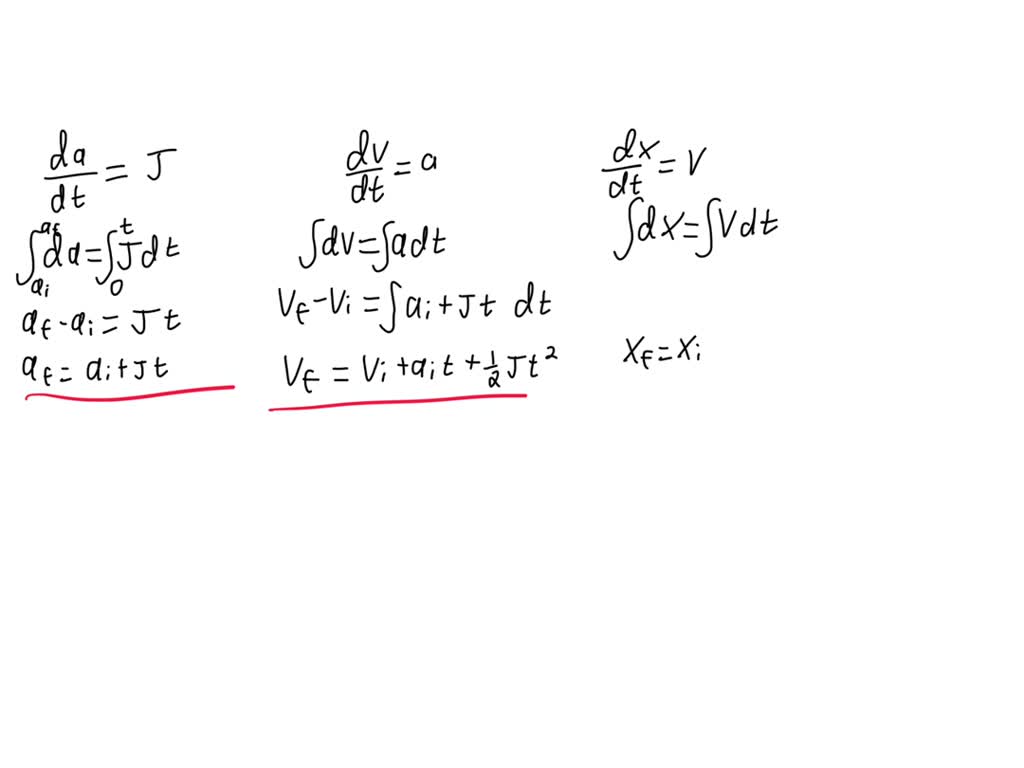 da/dt = J
∫_{ai}^{af} da = ∫_0^t J dt
af - ai = Jt
af = ai + Jt
dv/dt = a
∫dv = ∫adt
Vf - Vi = ∫ai + Jt dt
Vf = Vi + ait + 1/2 Jt²
dx/dt = V
∫dx = ∫Vdt
Xf = Xi